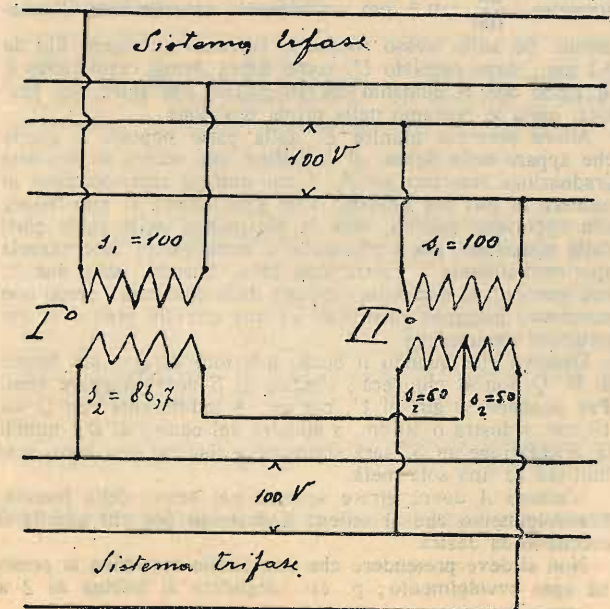 Sistema trifase
100 V
s₁ = 100
s₁ = 100
I°
II°
s₂ = 86,7
s₂=50
s₂=50
100 V
Sistema trifase